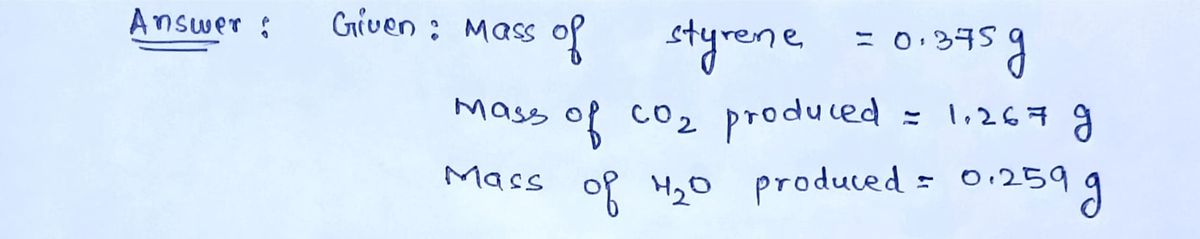 Answer : Given : Mass of styrene = 0.375 g
Mass of CO2 produced = 1.267 g
Mass of H2O produced = 0.259 g